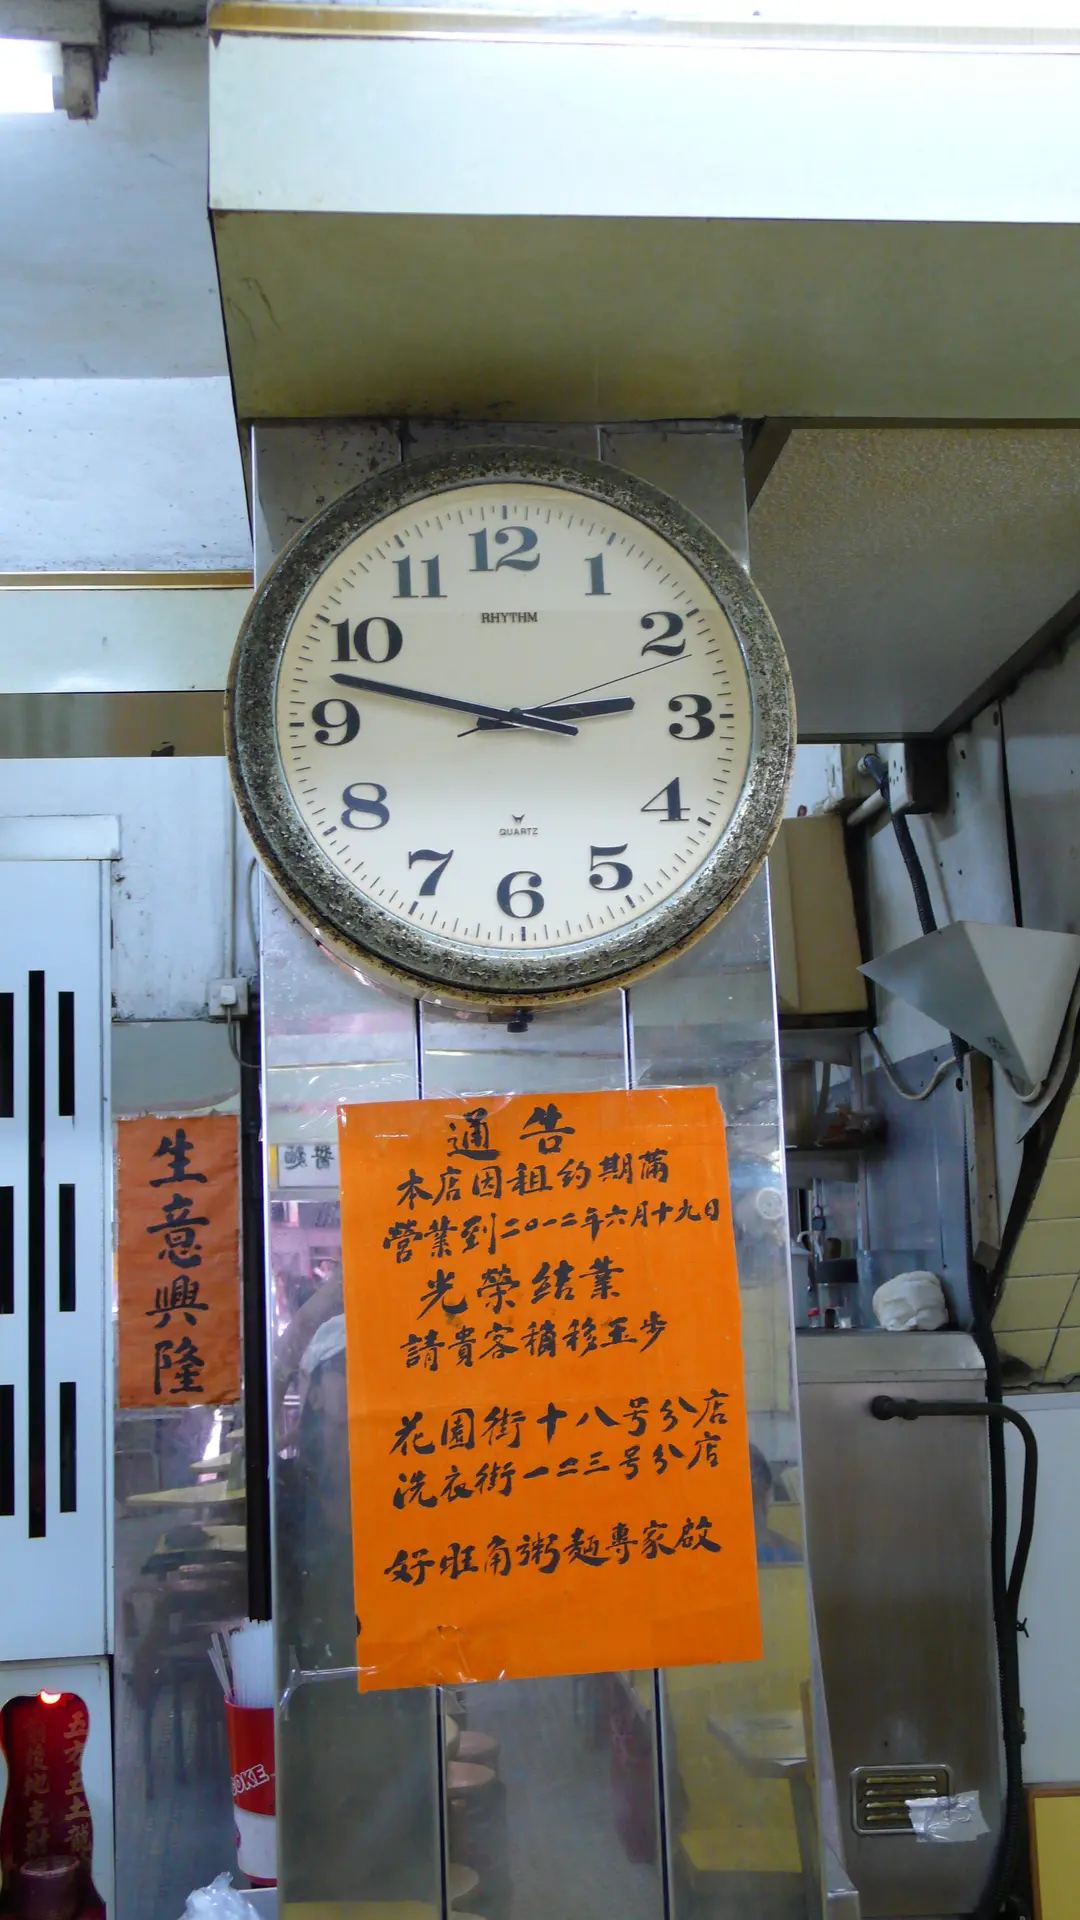 12
11
1
10
2
RHYTHM
9
3
8
4
QUARTZ
7
5
6
通告
本店因租約期滿
營業到二〇一二年六月十九日
光榮结業
請貴客稍移玉步
花園街十八号分店
洗衣街一二三号分店
好旺角粥麵專家啟
生意興隆
五方五土龍
OKE